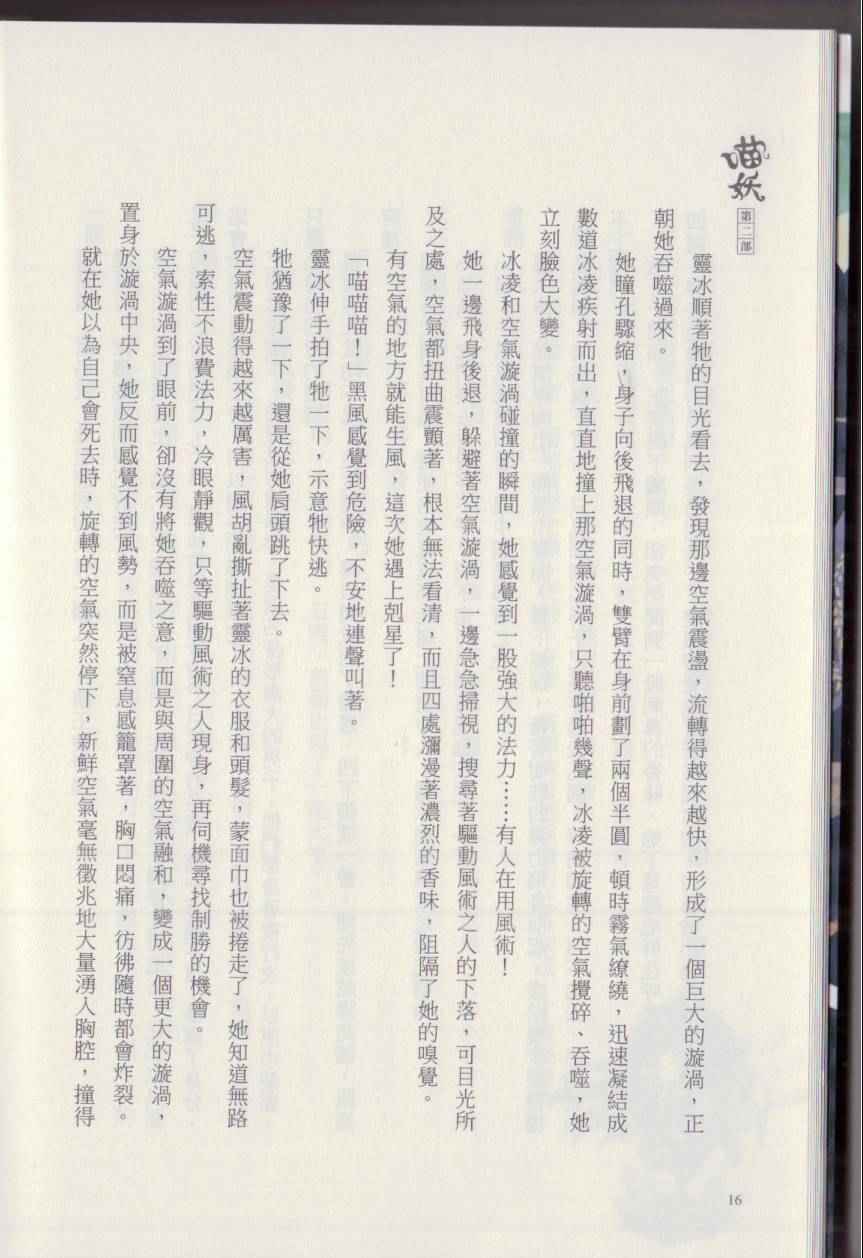 喵妖
第二部
靈冰順著牠的目光看去，發現那邊空氣震盪，流轉得越來越快，形成了一個巨大的漩渦，正
朝她吞噬過來。
她瞳孔驟縮，身子向後飛退的同時，雙臂在身前劃了兩個半圓，頓時霧氣繚繞，迅速凝結成
數道冰凌疾射而出，直直地撞上那空氣漩渦，只聽啪啪幾聲，冰凌被旋轉的空氣攪碎、吞噬，她
立刻臉色大變。
冰凌和空氣漩渦碰撞的瞬間，她感覺到一股強大的法力……有人在用風術！
她一邊飛身後退，躲避著空氣漩渦，一邊急急掃視，搜尋著驅動風術之人的下落，可目光所
及之處，空氣都扭曲震顫著，根本無法看清，而且四處瀰漫著濃烈的香味，阻隔了她的嗅覺。
有空氣的地方就能生風，這次她遇上剋星了！
「喵喵喵！」黑風感覺到危險，不安地連聲叫著。
靈冰伸手拍了牠一下，示意牠快逃。
牠猶豫了一下，還是從她肩頭跳了下去。
空氣震動得越來越厲害，風胡亂撕扯著靈冰的衣服和頭髮，蒙面巾也被捲走了，她知道無路
可逃，索性不浪費法力，冷眼靜觀，只等驅動風術之人現身，再伺機尋找制勝的機會。
空氣漩渦到了眼前，卻沒有將她吞噬之意，而是與周圍的空氣融和，變成一個更大的漩渦，
置身於漩渦中央，她反而感覺不到風勢，而是被窒息感籠罩著，胸口悶痛，彷彿隨時都會炸裂。
就在她以為自己會死去時，旋轉的空氣突然停下，新鮮空氣毫無徵兆地大量湧入胸腔，撞得
16